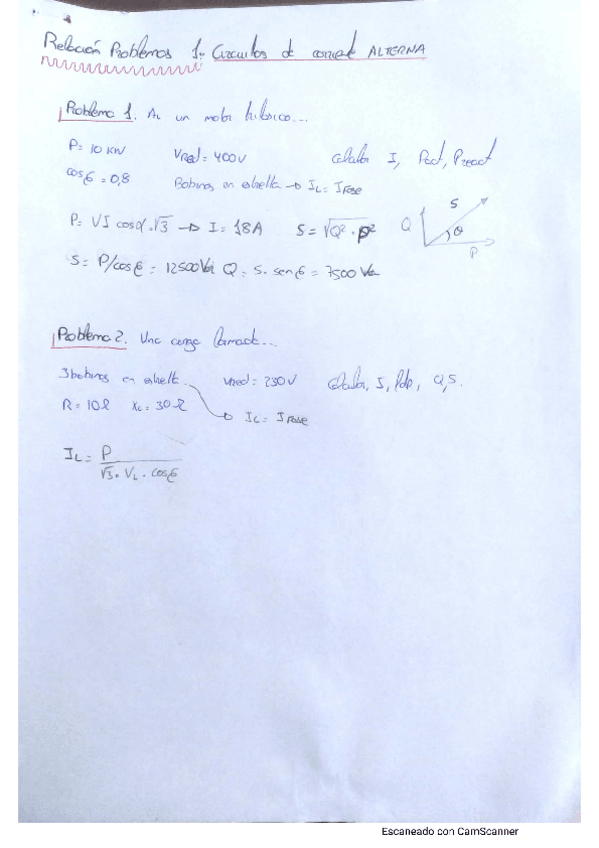 Relación Problemas 1: Circuitos de corriente ALTERNA
Problema 1. A un motor trifásico...
P= 10 KW Vred = 400V Calcular I, Pact, Preact
cosϕ = 0,8 Bobinas en estrella → IL = IFase
P= VI cosα·√3 → I = 18A S = √Q²·P²
S Q θ P
S = P/cosϕ = 12500Va Q = S·senϕ = 7500 Va
Problema 2. Una carga formada...
3 bobinas en estrella... Vred = 230V Calcular, I, Q,S.
R = 10Ω XL = 30Ω → IL = IFase
IL = P / √3·VL·cosϕ
Escaneado con CamScanner